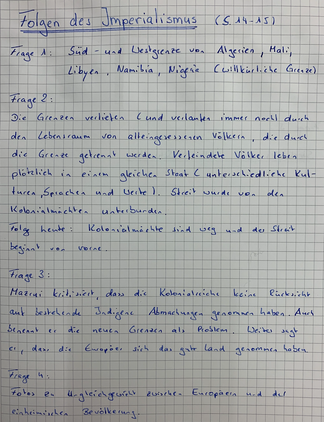 Folgen des Imperialismus (S. 14-15)
Frage 1: Süd- und Westgrenze von Algerien, Mali,
Libyen, Namibia, Nigeria (willkürliche Grenze)
Frage 2:
Die Grenzen verliefen (und verlaufen immer noch) durch
den Lebensraum von alteingesessenen Völkern, die durch
die Grenze getrennt werden. Verfeindete Völker leben
plötzlich in einem gleichen Staat (unterschiedliche Kul-
turen, Sprachen und Werte). Streit wurde von den
Kolonialmächten unterbunden.
Folge heute: Kolonialmächte sind weg und der Streit
beginnt von vorne.
Frage 3:
Mazrui kritisiert, dass die Kolonialreiche keine Rücksicht
auf bestehende Indigene Abmachungen genommen haben. Auch
benennt er die neuen Grenzen als Problem. Weiter sagt
er, dass die Europäer sich das gute Land genommen haben.
Frage 4:
Fotos zu Ungleichgewicht zwischen Europäern und der
einheimischen Bevölkerung.